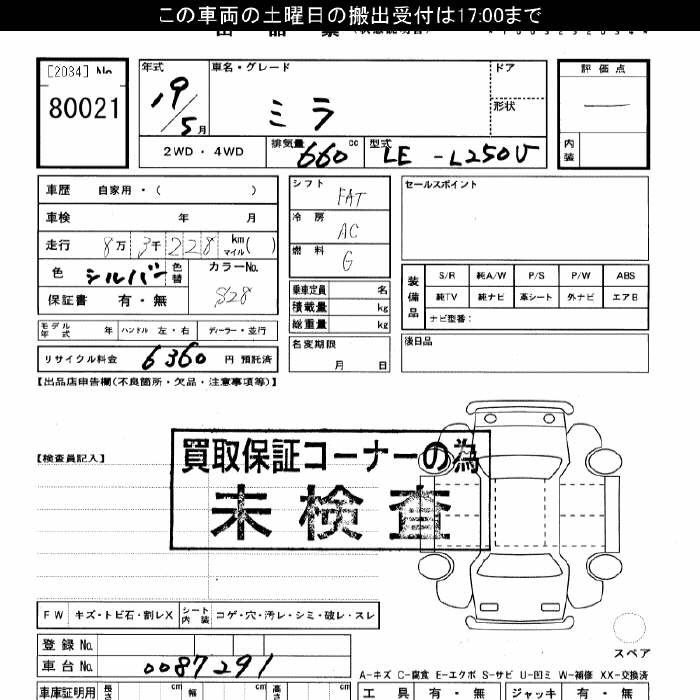 この車両の土曜日の搬出受付は17:00まで
[2034] No
80021
年式
19/5 月
車名・グレード
ミラ
ドア
形状
評価点
—
内装
2WD・4WD
排気量 660 cc
型式 LE-L250V
車歴 自家用・( )
車検 年 月
走行 8万 3千 228 km マイル( )
色 シルバー 色替
カラーNo. S28
保証書 有・無
シフト FAT
冷房 AC
燃料 G
乗車定員 名
積載量 kg
総重量 kg
セールスポイント
装備品
S/R 純A/W P/S P/W ABS
純TV 純ナビ 革シート 外ナビ エアB
ナビ型番:
モデル年式 年 ハンドル 左・右 ディーラー・並行
リサイクル料金 6360 円 預託済
名変期限
月 日
後日品
【出品店申告欄(不良箇所・欠品・注意事項等)】
【検査員記入】
買取保証コーナーの為
未検査
FW キズ・トビ石・割レX シート内装 コゲ・穴・汚レ・シミ・破レ・スレ
登録No.
車台No. 0087291
スペア
A-キズ C-腐食 E-エクボ S-サビ U-凹ミ W-補修 XX-交換済
車庫証明用 長さ cm 幅 cm 高さ cm
工具 有・無 ジャッキ 有・無